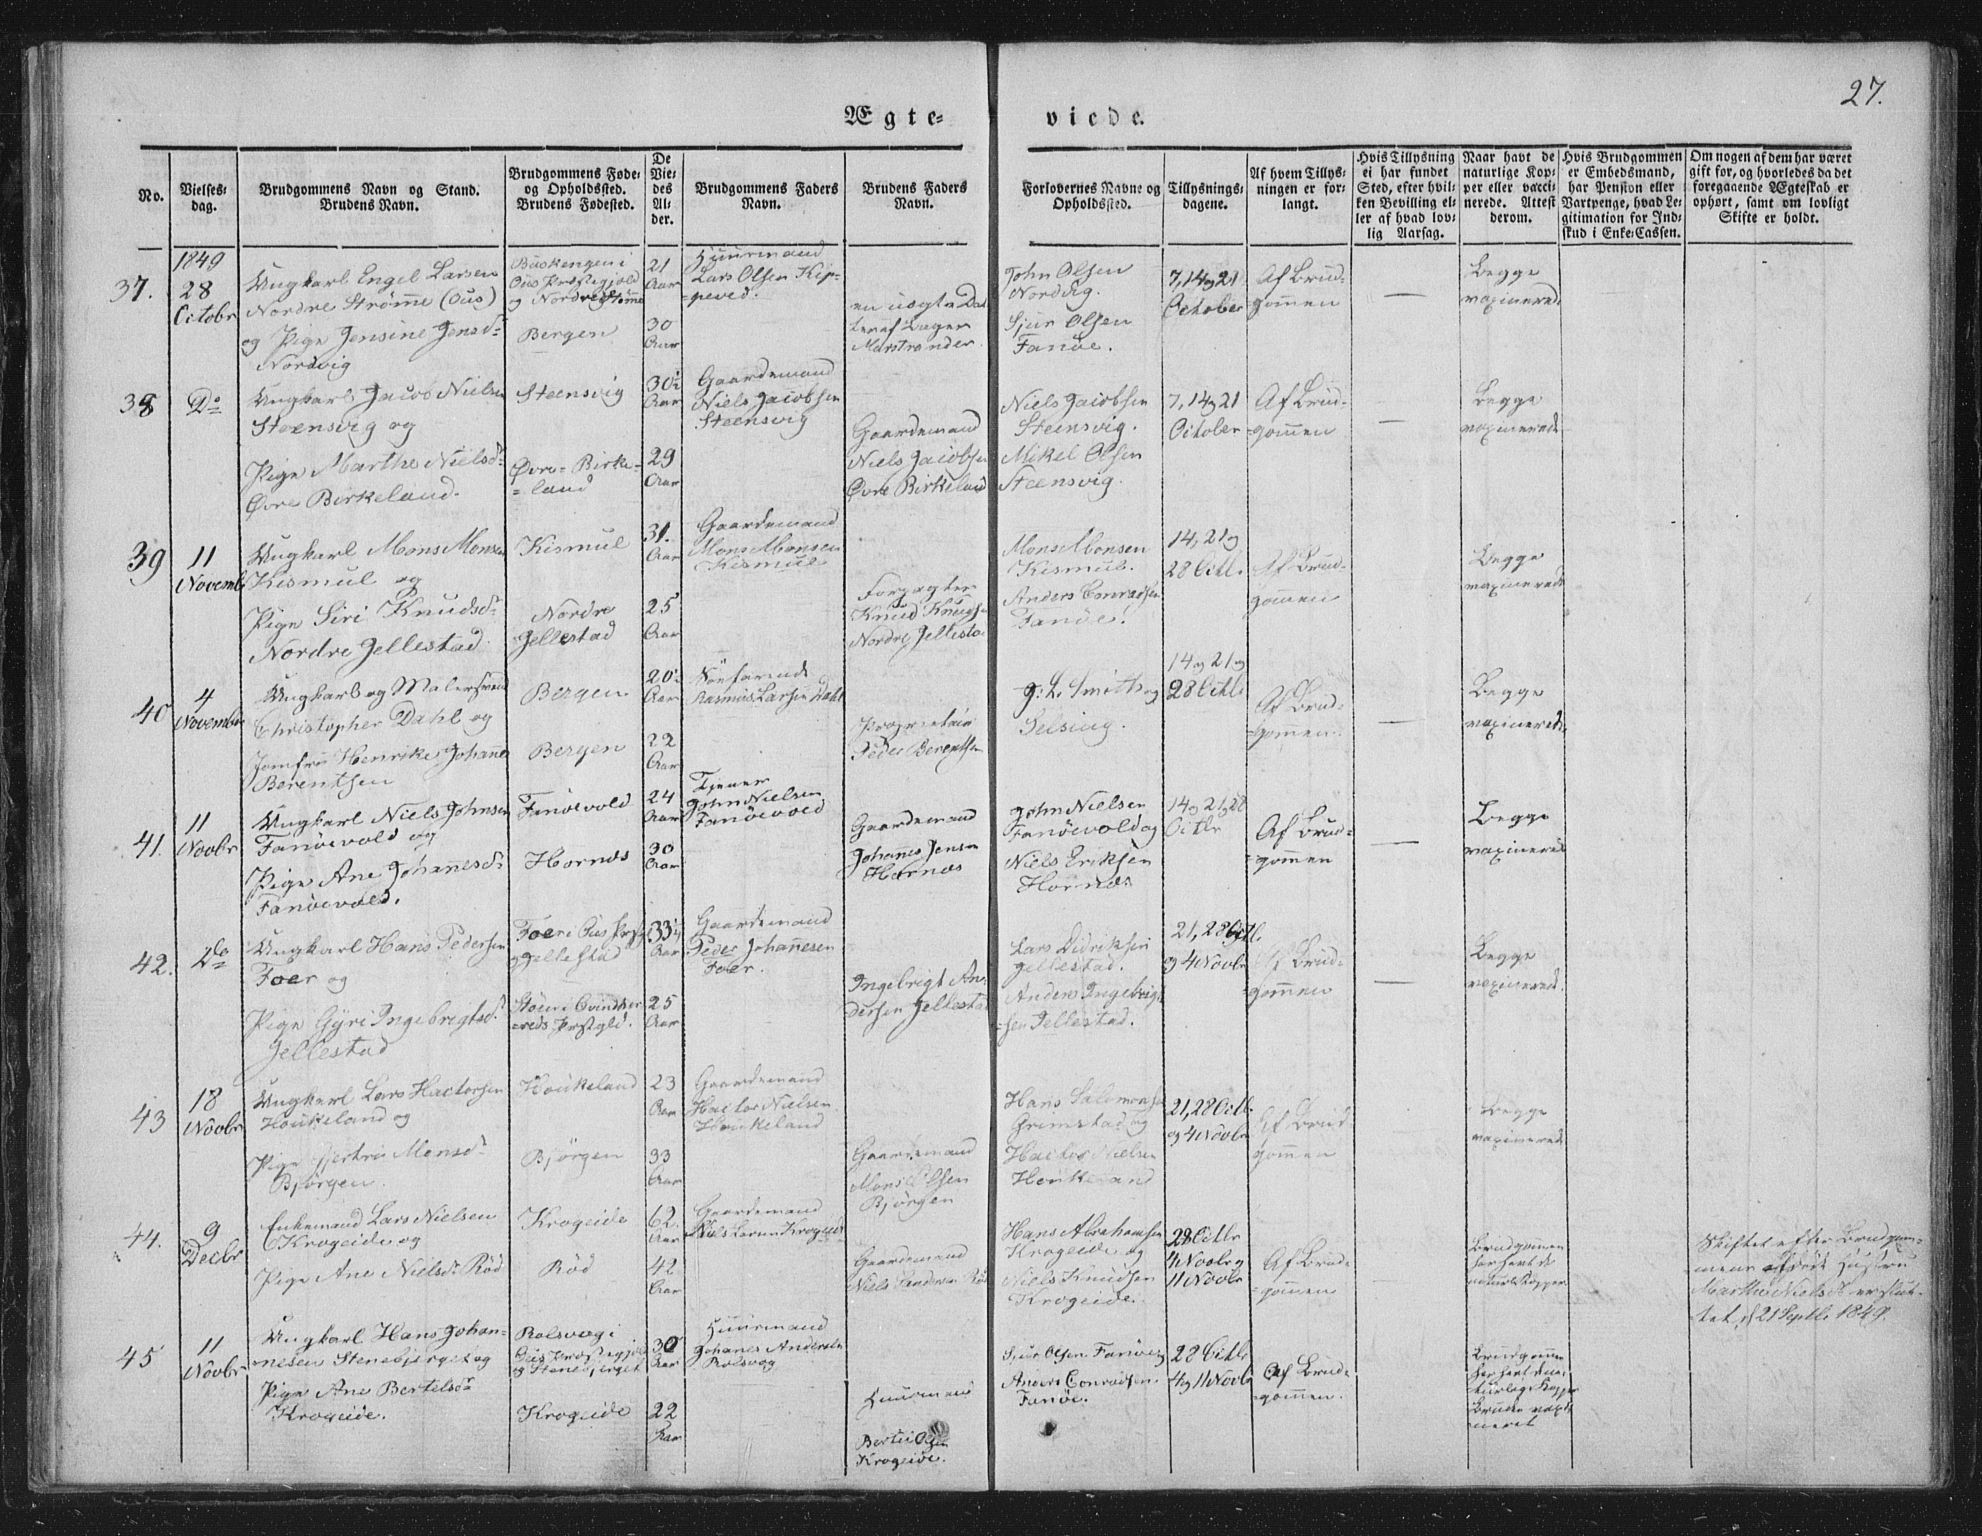 27.
Ægte= viede.
No.
Vielses-
dag.
Brudgommens Navn og Stand.
Brudens Navn.
Brudgommens Føde-
og Opholdssted.
Brudens Fødested.
De
Vie-
des
Al-
der.
Brudgommens Faders
Navn.
Brudens Faders
Navn.
Forlovernes Navne og
Opholdssted.
Tillysnings-
dagene.
Af hvem Tillys-
ningen er for-
langt.
Hvis Tillysning
ei har fundet
Sted, efter hvil-
ken Bevilling el-
ler af hvad lov-
lig Aarsag.
Naar havt de
naturlige Kop-
per eller vacci-
nerede. Attest
derom.
Hvis Brudgommen
er Embedsmand,
har Pension eller
Vartpenge, hvad Le-
gitimation for Ind-
skud i Enke-Cassen.
Om nogen af dem har været
gift før, og hvorledes da det
foregaaende Ægteskab er
ophørt, samt om lovligt
Skifte er holdt.
1849
37.
28
Octobr
Ungkarl Engel Larsen
Nordre Strømme (Ous)
og Pige Jensine Jensd:
Nordvig
Buskengen i
Ous Præstegjeld
Bergen
21
Aar
30
Aar
Huusmand
Lars Olsen
en uægte Dat
ter af
Marstrander
John Olsen
Nordvig.
Sjur Olsen
Fanøe.
7, 14 og 21
October
Af Brud-
gommen
Begge
vaxinerede
38
Do
Ungkarl Jacob Nielsen
Steensvig og
Pige Marthe Nielsd:
Øvre Birkeland.
Steensvig
Øvre-Birke-
=land
30½
Aar
29
Aar
Gaardemand
Niels Jacobsen
Steensvig
Gaardemand
Niels Jacobsen
Øvre Birkeland
Niels Jacobsen
Steensvig.
Mikel Olsen
Steensvig.
7, 14 og 21
October
Af Brud-
=gommen
Begge
vaxinerede
39
11
Novemb
Ungkarl Mons Monsen
Kismul og
Pige Siri Knudsd:
Nordre Jellestad
Kismul
Nordre
Jellestad
31.
Aar
25
Aar
Gaardemand
Mons Monsen
Kismul
Forpagter
Knud Knudsen
Nordre Jellestad
Mons Monsen
Kismul.
Anders Conradsen
Fanøe.
14, 21 og
28 Octb.
Af Brud-
gommen
Begge
vaxinerede
40
4
Novembr
Ungkarl og Malersvend
Christopher Dahl og
Jomfru Henrike Johanne
Berentsen
Bergen
Bergen
20
Aar
22
Aar
Søefarende
Rasmus Larsen Dahl
Proprietair
Peder Berentsen
J. L. Smith og
14 og 21 og
28 Octbr
Af Brud-
=gommen.
Begge
vaxinerede
41.
11
Novbr
Ungkarl Niels Johnsen
Fanøevold og
Pige Ane Johanesd:
Fanøevold.
Fanøevold
Hornæs
24
Aar
30
Aar
Tjener
John Nielsen
Fanøevold
Gaardemand
Johannes Jensen
Hornæs
John Nielsen
Fanøevold og
Niels Eriksen
Hornæs
14 og 21 og 28
Octbr
Af Brud=
=gommen
Begge
vaxinerede
42.
Do
Ungkarl Hans Pedersen
Foer og
Pige Gyri Ingebrigtsd.
Jellestad
Foer i Ous
og Jellestad
Støer i Qvindher
=reds Prstgld.
33½
Aar
25
Aar
Gaardemand
Peder Johannesen
Foer.
Ingebrigt An-
dersen Jellestad
Lars Didriksen
Jellestad.
Anders Ingebrigt
=sen Jellestad.
21, 28 Octb.
og 4 Novbr
Af Brud-
=gommen
Begge
vaxinerede
43
18
Novbr
Ungkarl Lars Hactorsen
Houkeland og
Pige Jertru Monsd:
Bjørgen.
Houkeland
Bjørgen
23
Aar
33
Aar
Gaardemand
Hactor Nielsen
Houkeland
Gaardemand
Mons Olsen
Bjørgen
Hans Salomonsen
Grimstad og
Hactor Nielsen
Houkeland
21, 28 Octb.
og 4 Novbr
Af Brud
gommen
Begge
vaxinerede
44.
9
Decbr
Enkemand Lars Nielsen
Krogeide og
Pige Ane Nielsd: Rød
Krogeide
Rød
62.
Aar
42
Aar
Gaardemand
Niels Larsen Krogeide
Gaardemand
Niels Andersen Rød
Hans Abrahamsen
Krogeide og
Niels Knudsen
Krogeide.
28 Octbr
4 Novbr og
11 Novbr
Af Brud-
=gommen
Brudgommen
har havt de
naturl. Kopper
Skiftet efter Brudgom-
mens afdøde Hustru
Marthe Nielsd: er slut-
tet d 21 Septb. 1849.
45
11
Novbr
Ungkarl Hans Johan-
nesen Stenebjerget og
Pige Ane Bertelsd:
Krogeide.
Rolsvog i
Ous Præstegjeld
og Stenebjerget
Krogeide
30
Aar
22
Aar
Huusmand
Johanes Andersen
Rolsvog
Huusmand
Bertel Olsen
Krogeide.
Sjur Olsen Fanøe og
Anders Conradsen.
Fanøe.
28 Octbr
4 og 11 Novbr
Af Brud-
=gommen.
Brudgommen
har havt de na-
turlige Kopper
Bruden vaxi-
neret